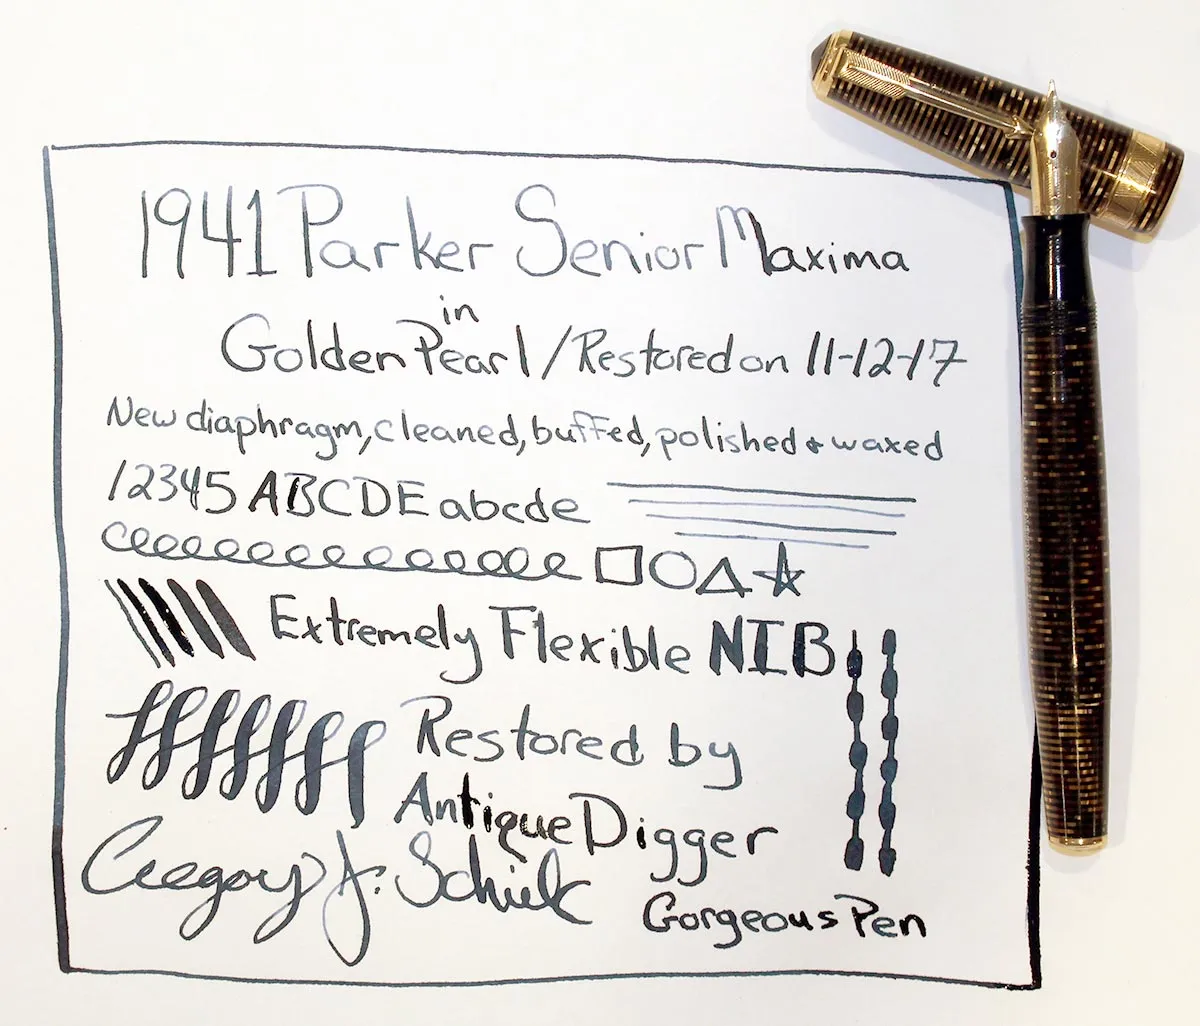 1941 Parker Senior Maxima
in
Golden Pearl/Restored on 11-12-17
New diaphragm, cleaned, buffed, polished & waxed
12345 ABCDE abcde
Extremely Flexible NIB
Restored by
Antique Digger
Gregory J.
Gorgeous Pen